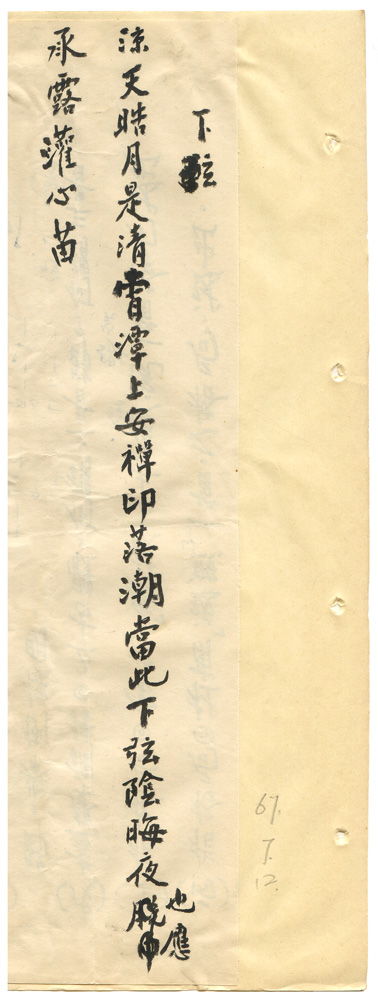 下弦
涼天皓月是清宵潭上安禪印落潮當此下弦陰晦夜也應
承露灌心苗
67.
7.
12.